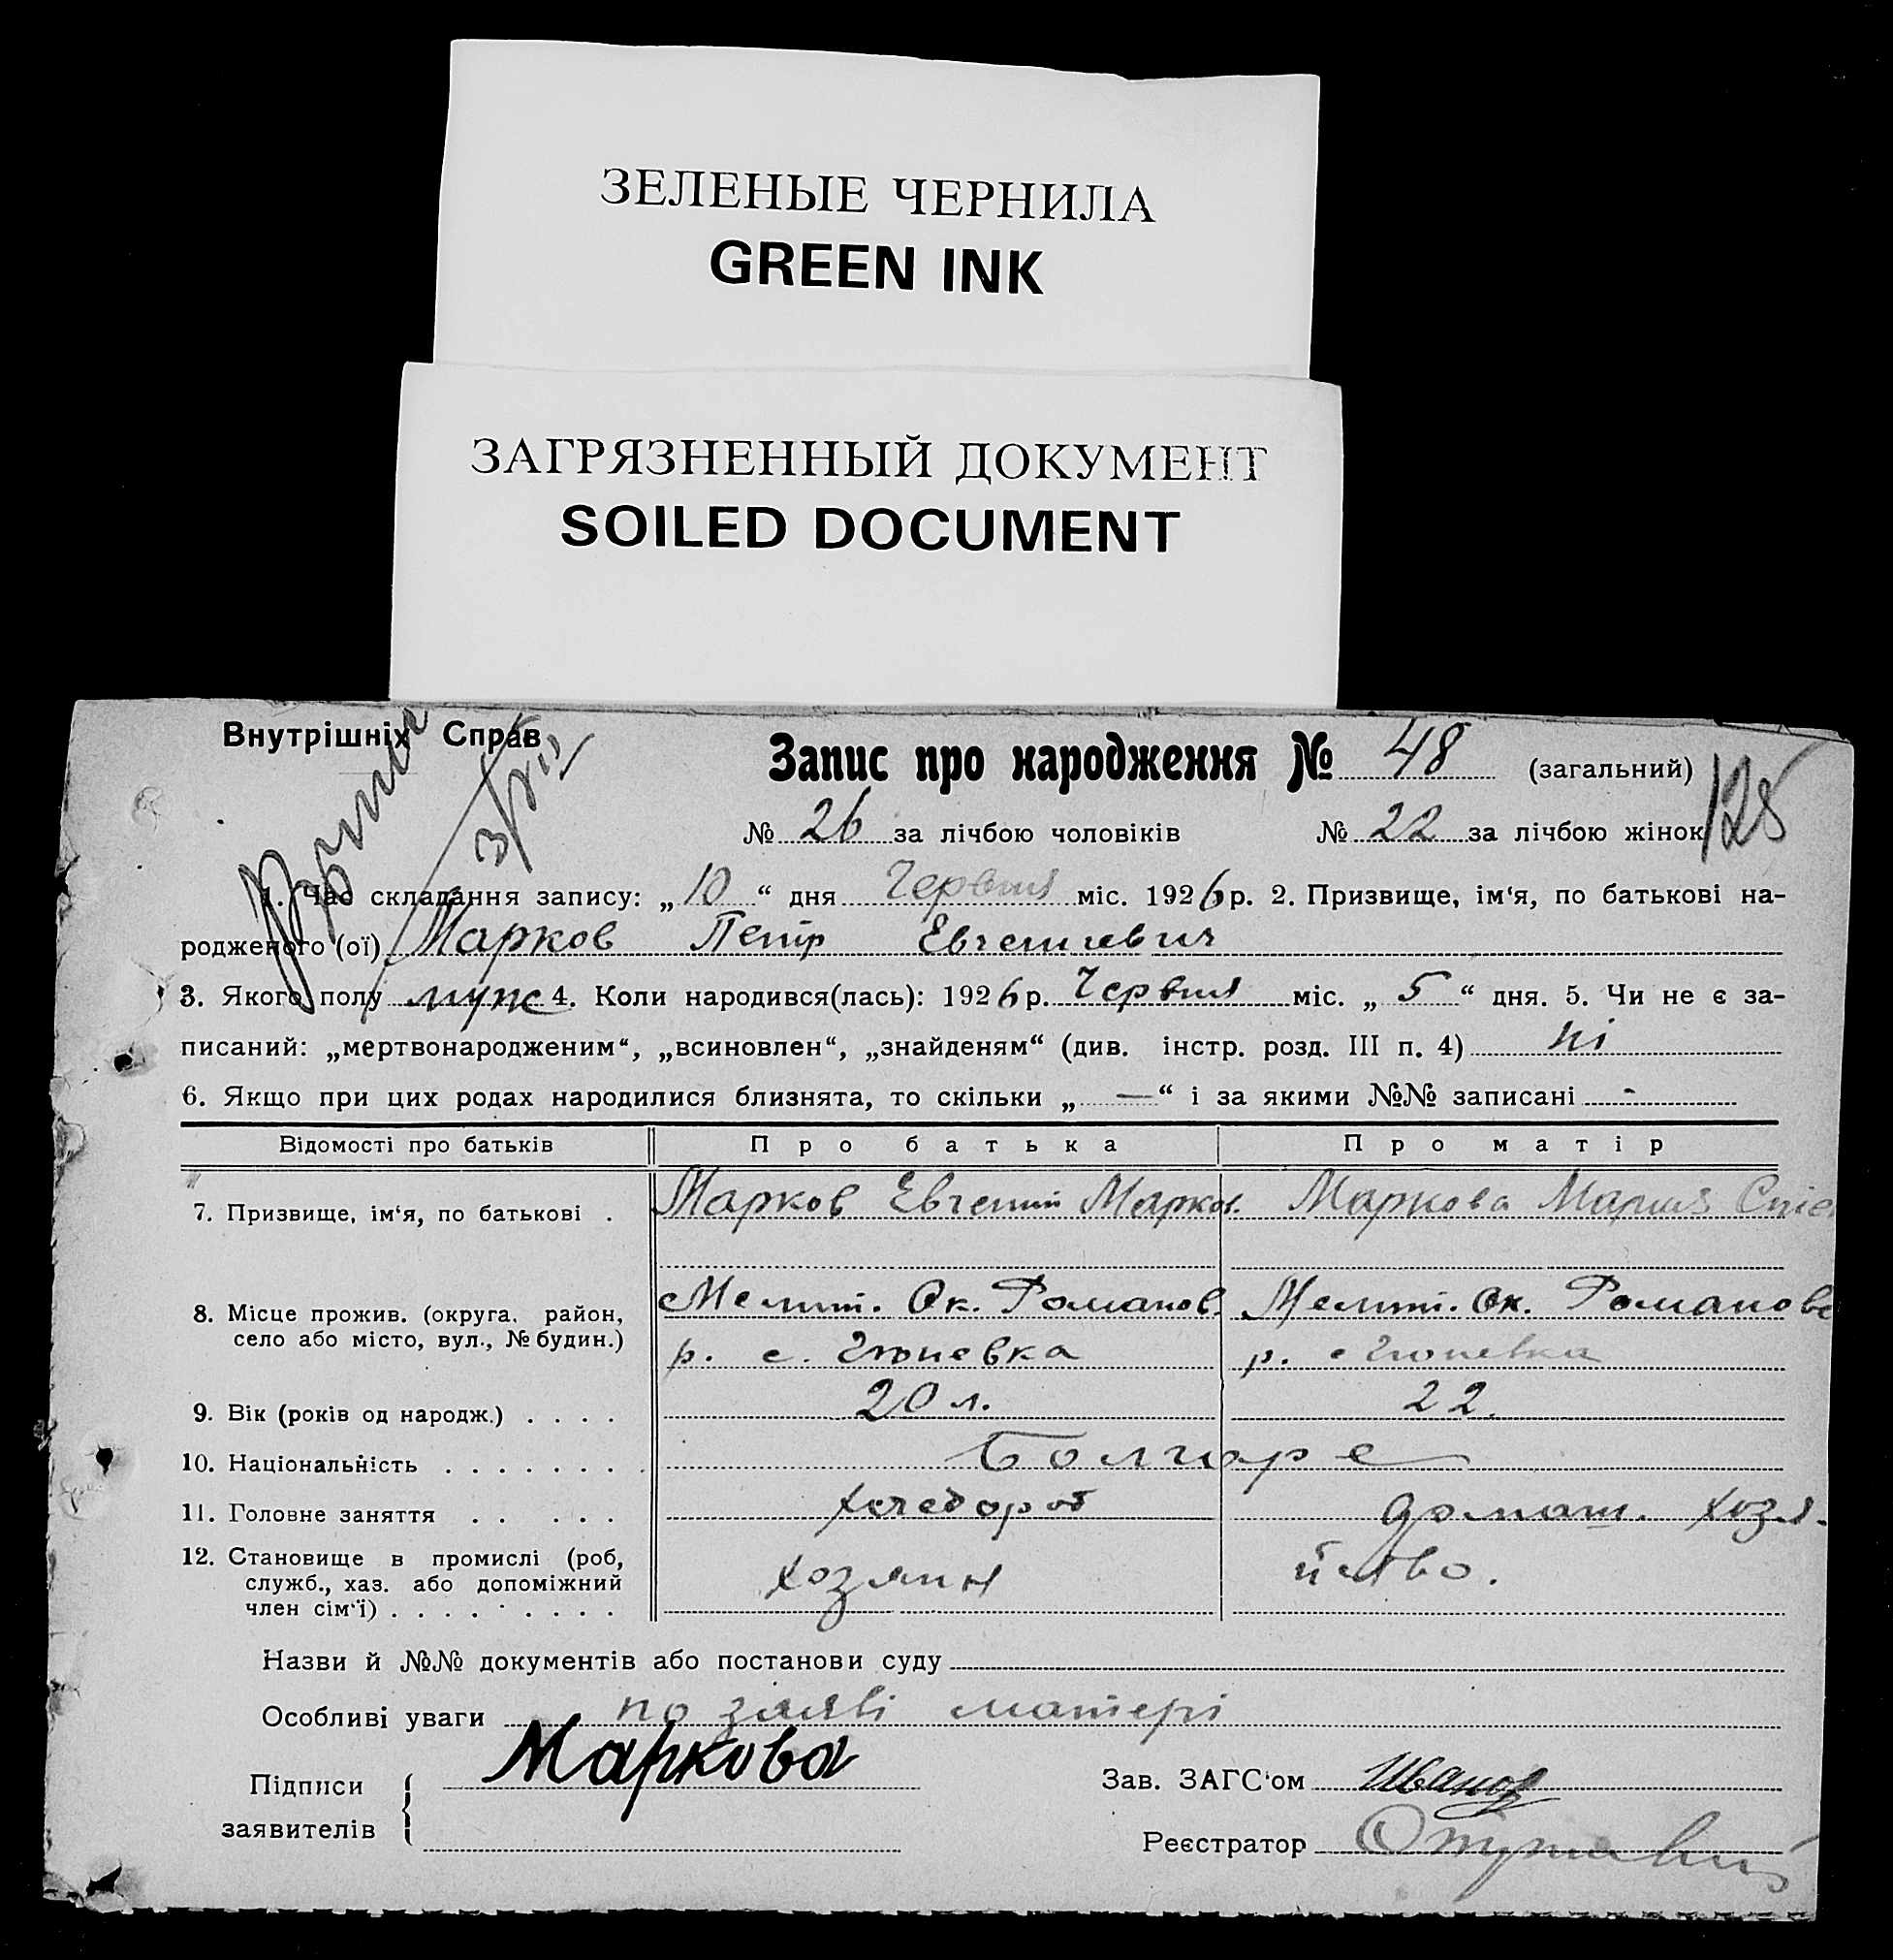 ЗЕЛЕНЫЕ ЧЕРНИЛА
GREEN INK
ЗАГРЯЗНЕННЫЙ ДОКУМЕНТ
SOILED DOCUMENT
Внутрішніх Справ
Запис про народження № 48 (загальний)
128
№ 26 за лічбою чоловіків № 22 за лічбою жінок
1. Час складання запису: „10“ дня Червня міс. 1926 р. 2. Призвище, ім‘я, по батькові на-
родженого (ої) Марков Петр Евгениевич
3. Якого полу муж 4. Коли народився(лась): 1926 р. Червня міс. „5“ дня. 5. Чи не є за-
писаний: „мертвонародженим“, „всиновлен“, „знайденям“ (див. інстр. розд. III п. 4) ні
6. Якщо при цих родах народилися близнята, то скільки „—“ і за якими №№ записані -
Відомості про батьків Про батька Про матір
7. Призвище, ім‘я, по батькові . Марков Евгений Марков. Маркова Мария
8. Місце прожив. (округа, район, Мелит. Ок. Романов. Мелит. Ок. Романовс
село або місто, вул., № будин.) р. с. Гюневка р. с Гюневка
9. Вік (років од народж.) . . . . 20 л. 22.
10. Національність . . . . . . . . Болгаре
11. Головне заняття . . . . . хлебороб домаш. хозя-
12. Становище в промислі (роб, хозяин йство.
служб., хаз. або допоміжний
член сім‘ї) . . . . . . . . .
Назви й №№ документів або постанови суду
Особливі уваги по заяві матері
Підписи Маркова Зав. ЗАГС‘ом Иванов
заявителів Реєстратор